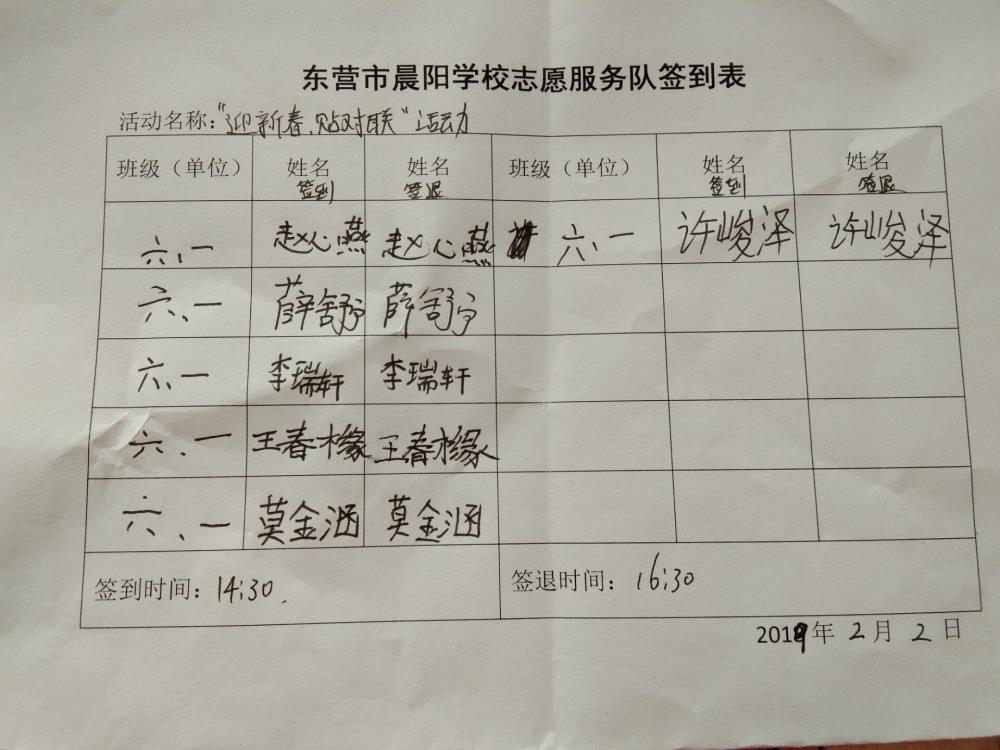 东营市晨阳学校志愿服务队签到表
活动名称：“迎新春、贴对联”活动
班级（单位） 姓名 姓名 班级（单位） 姓名 姓名
签到 签退 签到 签退
六、一 赵心燕 赵心燕 六、一 许峻泽 许峻泽
六、一 薛舒 薛舒
六、一 李瑞轩 李瑞轩
六、一 王春橼 王春橼
六、一 莫金涵 莫金涵
签到时间：14:30. 签退时间：16:30
2019年2月2日